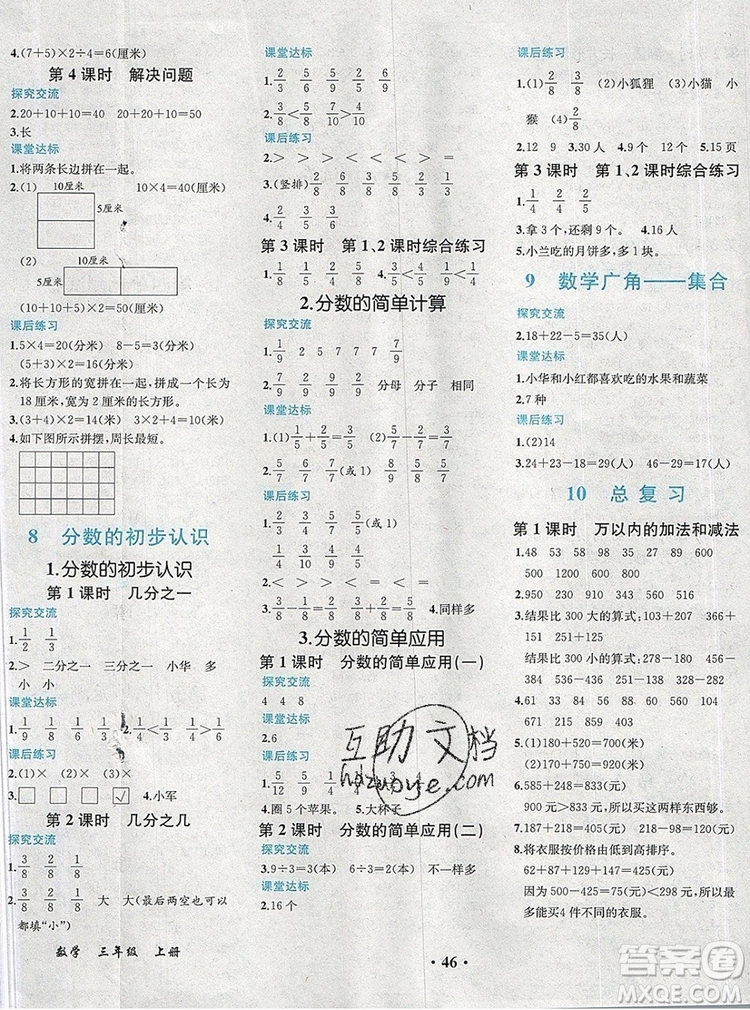 4.(7+5)×2÷4=6(厘米)
第 4 课时 解决问题
探究交流
2.20+10+10=40 20+20+10=50
3.长
课堂达标
1.将两条长边拼在一起。
2.(1) 10厘米 10×4=40(厘米)
5厘米
(2) 10厘米
5厘米
(10+10+5)×2=50(厘米)
课后练习
1.5×4=20(分米) 8-5=3(分米)
(5+3)×2=16(分米)
2.将长方形的宽拼在一起,拼成一个长为
18厘米,宽为2厘米的长方形。
3.(3+4)×2=14(厘米) 3×2+4=10(厘米)
4.如下图所示拼摆,周长最短。
8 分数的初步认识
1.分数的初步认识
第 1 课时 几分之一
探究交流
1.1/2 1/3
2.> 二分之一 三分之一 小华 多
小 小
课堂达标
1.1/9 1/8 1/6 1/3 2.1/4<1/3 1/4>1/6
课后练习
2.(1)× (2)× (3)√
3.□ □ □ ☑ 4.小军
第 2 课时 几分之几
1.3/8 2/8 1/8 3/8
2.2/8 1/8 3/8 大 大(最后两空也可以
都填“小”)
数学 三年级 上册
课堂达标
1.2/3 5/6 1/5 3/5 4/10 7/10
2.2/8<5/8 5/7>4/7 7/10>5/10
课后练习
2.> > < > < > < >
3.(竖排)2/8 6/8 3/8 3/8 4/8 8/8
4.2/4 3/5 3/6
第 3 课时 第 1、2 课时综合练习
1.1/8 1/8 1/4 1/4 1/9 1/9
2.分数的简单计算
探究交流
1.1/9 1/9 2 5 7 7 7 7/9
2.7/9 2/9 2/9 分母 分子 相同
课堂达标
2.5/7 6/7 1/6 7/7(或1) 3/5
课后练习
2.< < > = < =
4.同样多
3.分数的简单应用
第 1 课时 分数的简单应用(一)
探究交流
4 4 8
课堂达标
2.6
课后练习
4.圈5个苹果。 5.大杯子
第 2 课时 分数的简单应用(二)
3.9÷3=3(本) 6÷3=2(本) 不一样多
课堂达标
2.16个
· 46 ·
课后练习
1.(1)2/8 3/8 (2)小狐狸 (3)小猫 小
猴 2/8
2.12 9 3.30人 4.9个 12个 5.15页
第 3 课时 第 1、2 课时综合练习
1.1/4 2/4 2/5
3.拿3个,还剩9个。 4.16人
5.小兰吃的月饼多,多1块。
9 数学广角——集合
探究交流
2.18+22-5=35(人)
课堂达标
1.小华和小红都喜欢吃的水果和蔬菜
2.7种
课后练习
1.(2)14
2.24+23-18=29(人) 46-29=17(人)
10 总复习
第 1 课时 万以内的加法和减法
1.48 53 58 98 35 38 600
500 1200 600 800
2.950 230 910 320 640 430
3.结果比300大的算式:103+207 366+
151 290+30 548-201
结果比300小的算式:538-298 684-
4.701 84 638 500 287 563 558
5.(1)180+520=700(米)
(2)180+720=900(米)
6.585+247=832(元) 832<900
所以买这两样东西够。
7.189+29=218(元) 218-98=120(元)
8.将衣服按价格由低到高排序。
62+87+129+147=425(元)
因为500-425=75(元)<298元,所以最
多能买4件不同的衣服。
互助文档
hdzuoye.com
答案圈
MXQE.COM